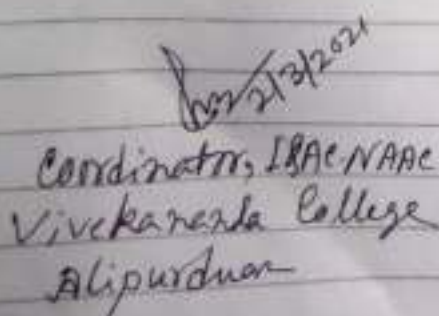 2/3/2021
Coordinator, IQAC-NAAC
Vivekananda College
Alipurduar